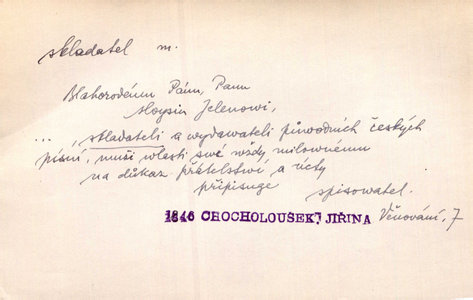 skladatel m.
Blahorodému Pánu, Panu
Aloysiu Jelenowi,
..., skladateli a wydawateli půwodních českých
písní, muži wlasti swé wždy milownému
na důkaz přátelství a úcty
připisuge spisowatel.
1846 CROCHOLOUŠEK, JIŘINA Věnování, 7